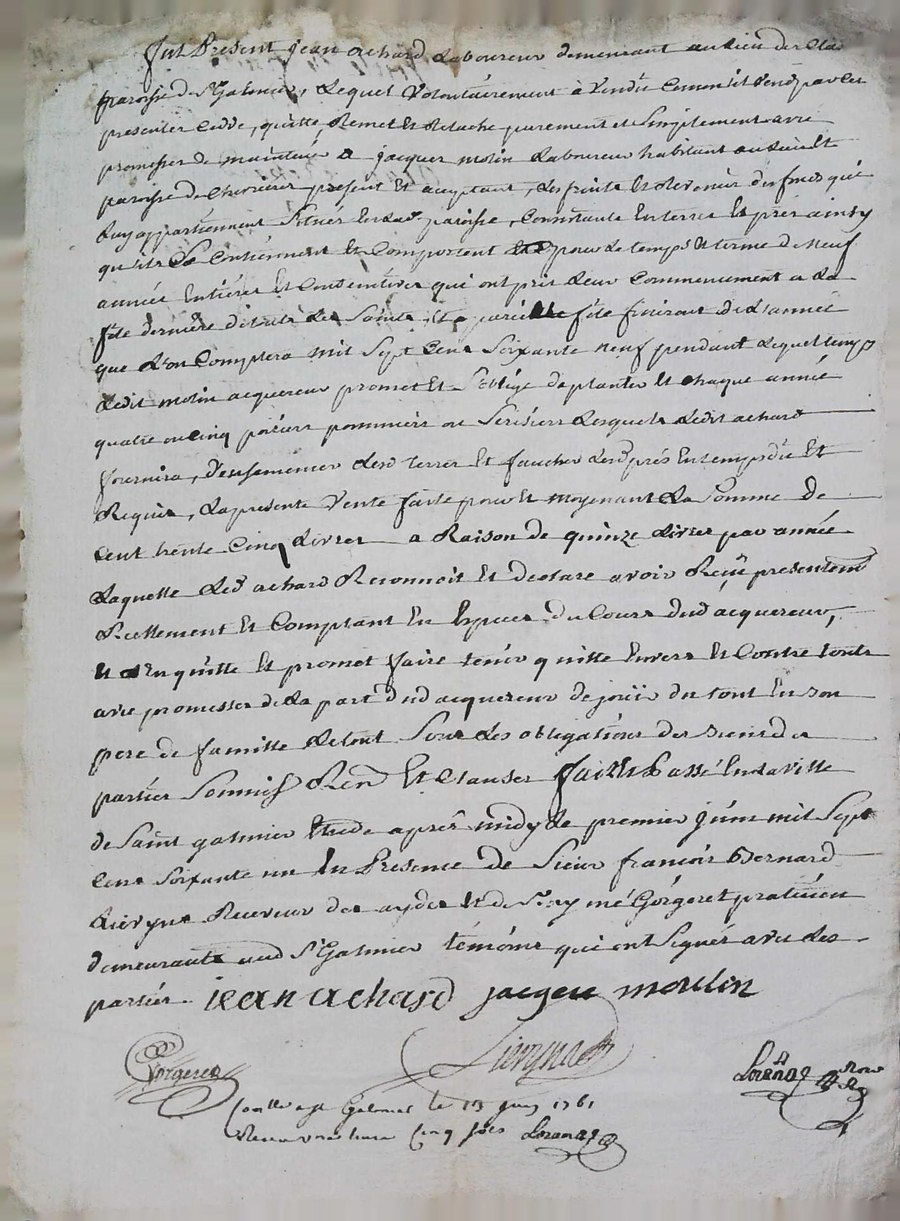 fut Present jean achard Laboureur demeurant au Lieu des
paroisse de St Galmier, Lequel Volontairement à Vendu Comme il Vend par Ces
presentes Cedde, quitte, Remet Et Relache purement et Simplement avec
promesse de maintenir a jacques molin Laboureur habitant au
paroisse de Chevrieres present Et aceptant, Les fruits Et Revenus des fonds qui
Luy appartiennent Situés En Lad. paroisse, Consistants En terres Et prés ainsy
qu'ils Se Contiennent Et Comportent Et pour Le temps Et terme de Neuf
années Entières Et Consecutives qui ont pris Leur Commencement a La
fête dernière de touts Les Saints, Et a pareille fête finiront de L'année
que L'on Comptera mil Sept Cent Soixante neuf pendant Lequel temps
Ledit molin acquereur promet Et S'oblige de planter Et chaque année
quatre ou Cinq poiriers pommiers ou Serisiers Lesquels Ledit achard
fournira, d'ensemencer Lesd. terres Et faucher Lesd. prés En temps dû Et
Requis, La presente Vente faite pour Et moyenant La Somme de
Cent trente Cinq Livres a Raison de quinze Livres par année
Laquelle Led. achard Reconnoit Et declare avoir Reçüe presentemt
Réellement Et Comptant En Especes du Cours dud acquereur,
Et L'En quitte Et promet faire tenir quitte Envers Et Contre touts
avec promesses de La part dud acquereur de joüir du tout En bon
pere de famille Le tout Sous Les obligations des biens des
parties Soumiss. Ren. Et Clauses fait Et Passé En La Ville
de Saint galmier Etude après midy Le premier juin mil Sept
Cent Soixante un En Presence de Sieur françois Bernard
Lievyne Receveur des aydes Et de Gorgeret praticien
demeurants aud St Galmier témoins qui ont Signés avec Les
parties. iean achard jacque moulin
Gorgeret
Loreñas
Con.lle a St Galmier le 13 juin 1761
Reçu Cinq sols Lorenas